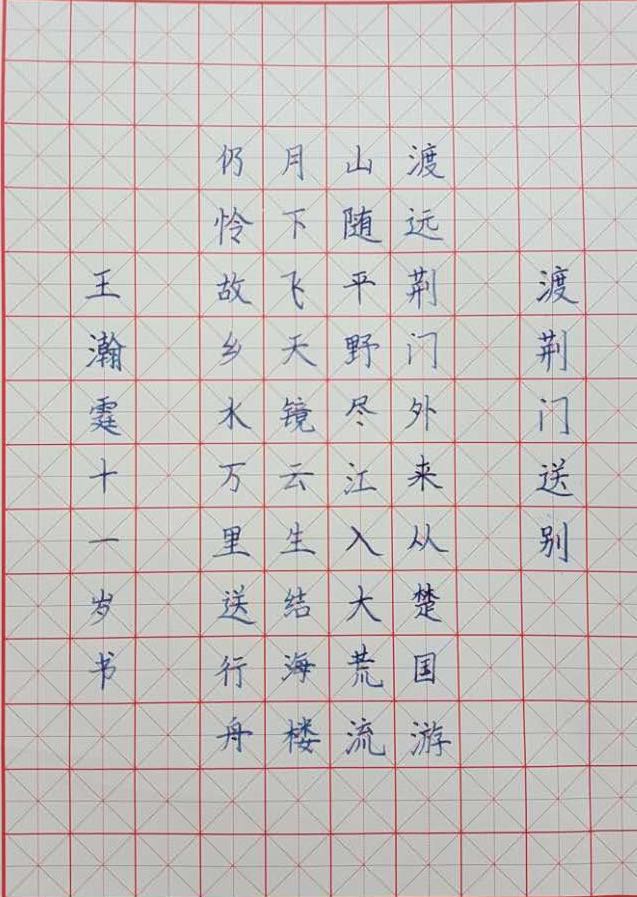 渡荆门送别
渡远荆门外来从楚国游
山随平野尽江入大荒流
月下飞天镜云生结海楼
仍怜故乡水万里送行舟
王瀚霆十一岁书